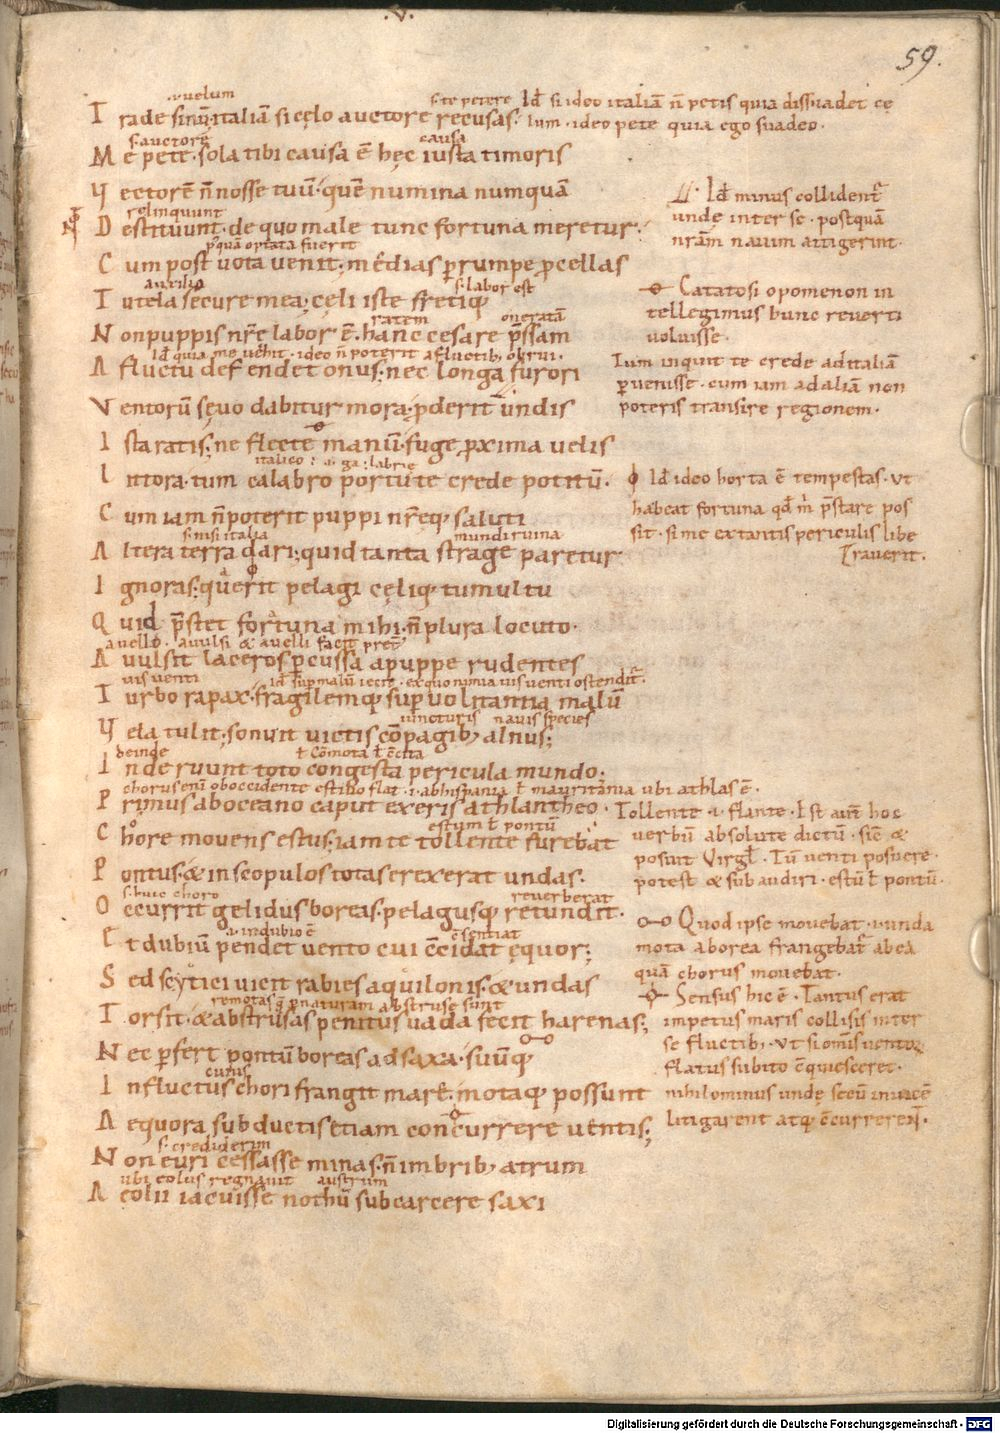 .V.
59.
.i. uelum
s. te petere
Id̄ si ideo italiā n̄ petis quia dissuadet cę
I rade sinū italiā si cęlo auctore recusas.
lum . ideo pete quia ego suadeo.
s. auctore
causa
M e pete . sola tibi causa ē hęc iusta timoris
V ectorē n̄ nosse tuū . quē numina numquā
Id̄ minus collident᷑
relinquunt
undę inter se . postquā
D estituunt . de quo male tunc fortuna meretur.
nrām nauim attigerint.
p̄quā optata fuerit
C um post uota uenit . medias p̱rumpe p̱cellas
auxilio
s. labor est
Catatosi opomenon in
T utela secure mea; cęli iste fretiq;
tellegimus hunc reuerti
ratem
oneratā
uoluisse.
N on puppis nr̄ę labor ē. hanc cesare p̄ssam
Id̄ quia me uehit . ideo n̄ poterit a fluctib; obrui.
A fluctu defendet onus; nec longa furori
Tum inquit te crede ad italiā
p̱uenisse . cum iam ad aliā non
V entorū sęuo dabitur mora; p̱derit undis
poteris transire regionem.
I sta ratis; ne flecte manū. fuge p̱xima uelis
italico
L ittora. tum calabro portu te crede potitū.
Id̄ ideo horta ē tempestas . ut
habeat fortuna qd̄ m̄ p̄stare pos
C um iam n̄ poterit puppi nr̄eq; saluti
sit . si me ex tantis periculis libe
s. nisi italia
mundi ruina
A ltera terra dari; quid tanta strage paretur
rauerit.
I gnoras; querit pelagi cęliq; tumultu
Q uid p̄stet fortuna mihi. n̄ plura locuto.
auello . auulsi & auelli facit pret̄
A uulsit laceros p̱cussa a puppe rudentes
uis uenti
T urbo rapax. fragilemq; sup̱ uolitantia malū
iuncturis nauis species
V ela tulit. sonuit uictis cōpagib; alnus;
deinde
ł cōmota
I nde ruunt toto congesta pericula mundo;
chorus enī ab occidente estiuo flat .i. ab hispania ł mauritania ubi athlas ē.
P rimus ab oceano caput exeris athlantheo.
Tollente .i. flante . Est aut̄ hoc
estum ł pontū
uerbū absolute dictū . sic̄ &
C hore mouens estus; iam te tollente furebat
posuit Virgł . Tū uenti posuere.
P ontus. & in scopulos totas erexerat undas.
potest & subaudiri . estū ł pontū.
s. huic choro
reuerberat
O ccurrit gelidus boreas. pelagusq; retundit.
Quod ipse mouebat . unda
.i. in dubio ē
E t dubiū pendet uento cui c̄cidat equor;
mota a borea frangebat᷑ ab ea
quā chorus mouebat.
S ed scytici uicit rabies aquilonis. & undas
Sensus hic ē . Tantus erat
remotas q̄ p̱ naturam abstrusę sunt
T orsit. & abstrusas penitus uada fecit harenas;
impetus maris collisis inter
se fluctib; . ut si om̄is uentoꝝ
N ec p̱fert pontū boreas ad saxa. suūq;
flatus subito c̄quiesceret.
I n fluctus chori frangit mare. motaq; possunt
nihilominus undę secū inuicē
A equora subductis etiam concurrere uentis;
litigarent atq; c̄currerent.
s. crediderim
N on euri cessasse minas. n̄ imbrib; atrum
ubi eolus regnauit
austrum
A eolii iacuisse nothū sub carcere saxi
Digitalisierung gefördert durch die Deutsche Forschungsgemeinschaft - DFG